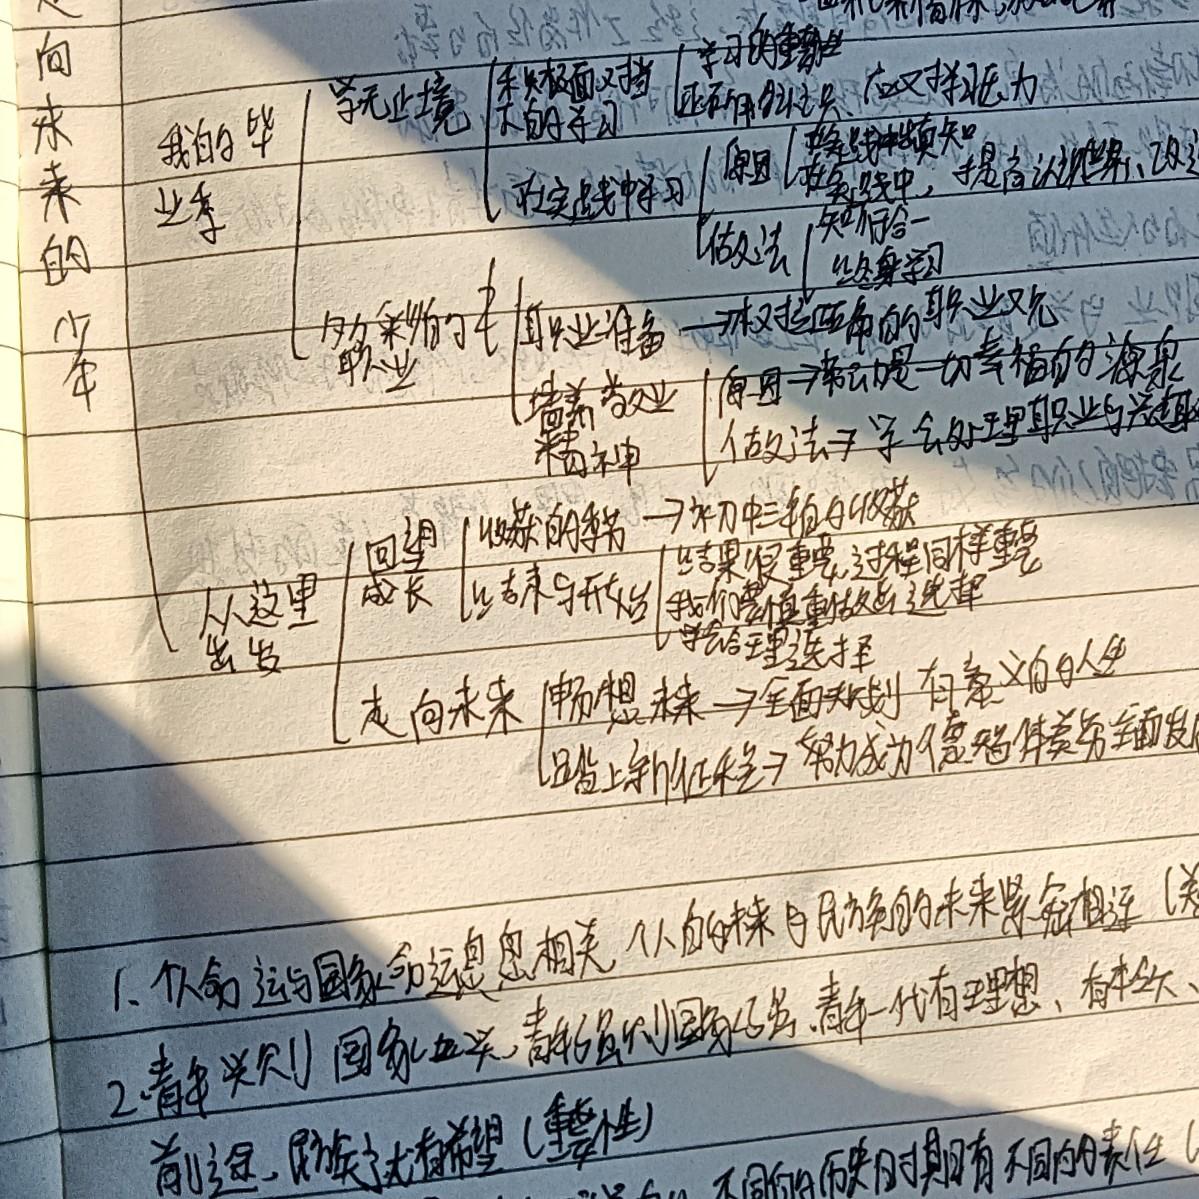 走向未来的少年
我的毕业季
学无止境
积极面对当下的学习
学习的重要性
应对学习压力
在实践中学习
原因
在实践中求真知
在实践中，提高认识世界、改造
做法
知行合一
终身学习
多彩的职业
职业准备→
的职业状况
培养敬业精神
原因→劳动是一切幸福的源泉
做法→学会处理职业与兴趣
从这里出发
回望成长
收获的季节→初中三年的收获
结束与开始
结果很重要,过程同样重要
我们要慎重做出选择
学会合理选择
走向未来
畅想未来→全面规划 有意义的人生
踏上新征程→努力成为德智体美劳全面发展
1、个人命运与国家命运息息相关 个人的未来与民族的未来紧密相连（关
2.青年兴则国家兴,青年强则国家强.青年一代有理想、有本领、
前途,民族就大有希望（重要性）
不同的历史时期有不同的责任（